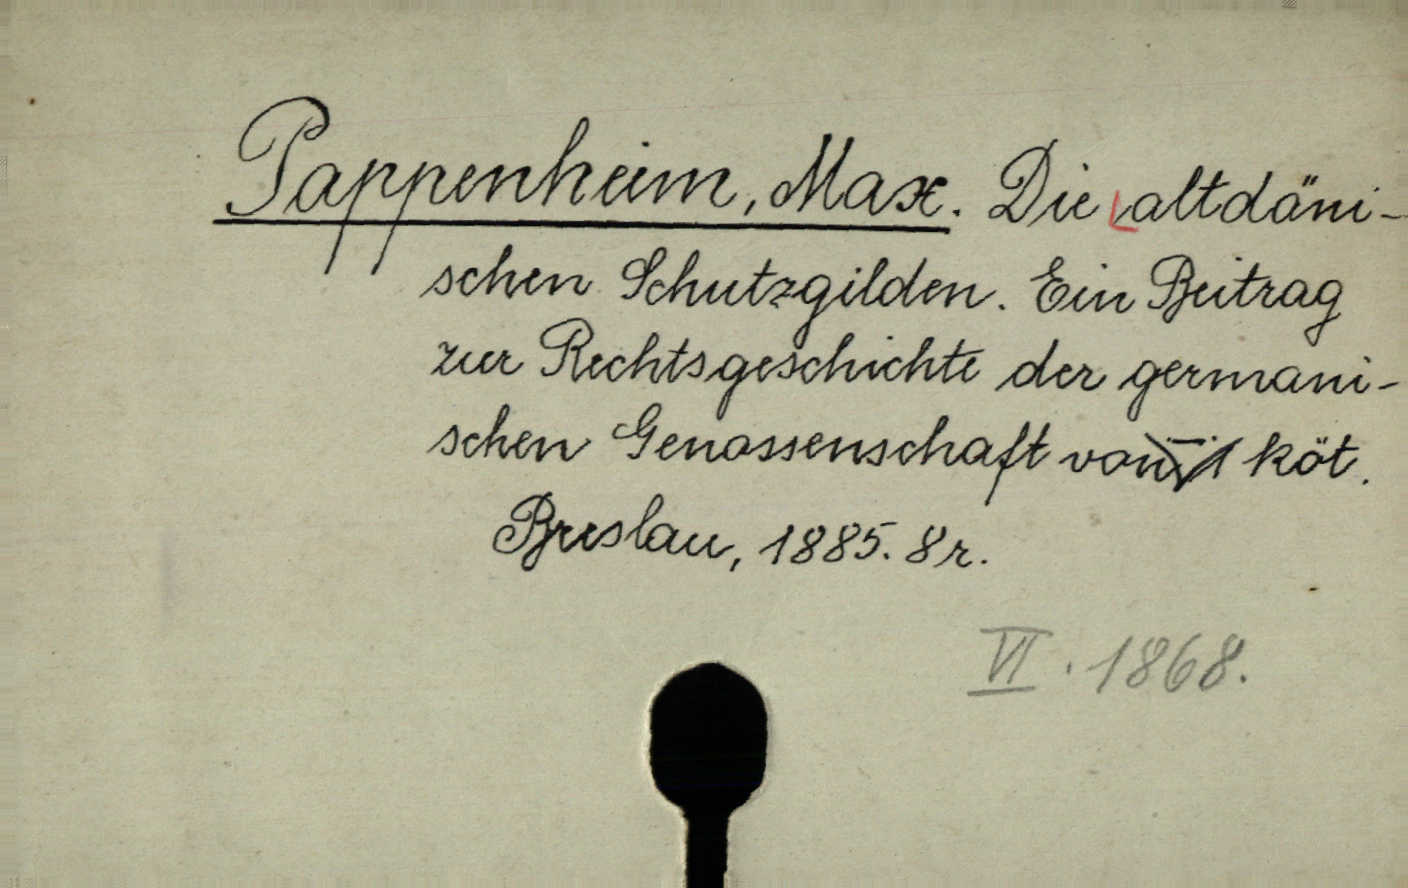 Pappenheim, Max. Die altdäni-
schen Schutzgilden. Ein Beitrag
zur Rechtsgeschichte der germani-
schen Genossenschaft 1 köt.
Breslau, 1885. 8r.
VI. 1868.